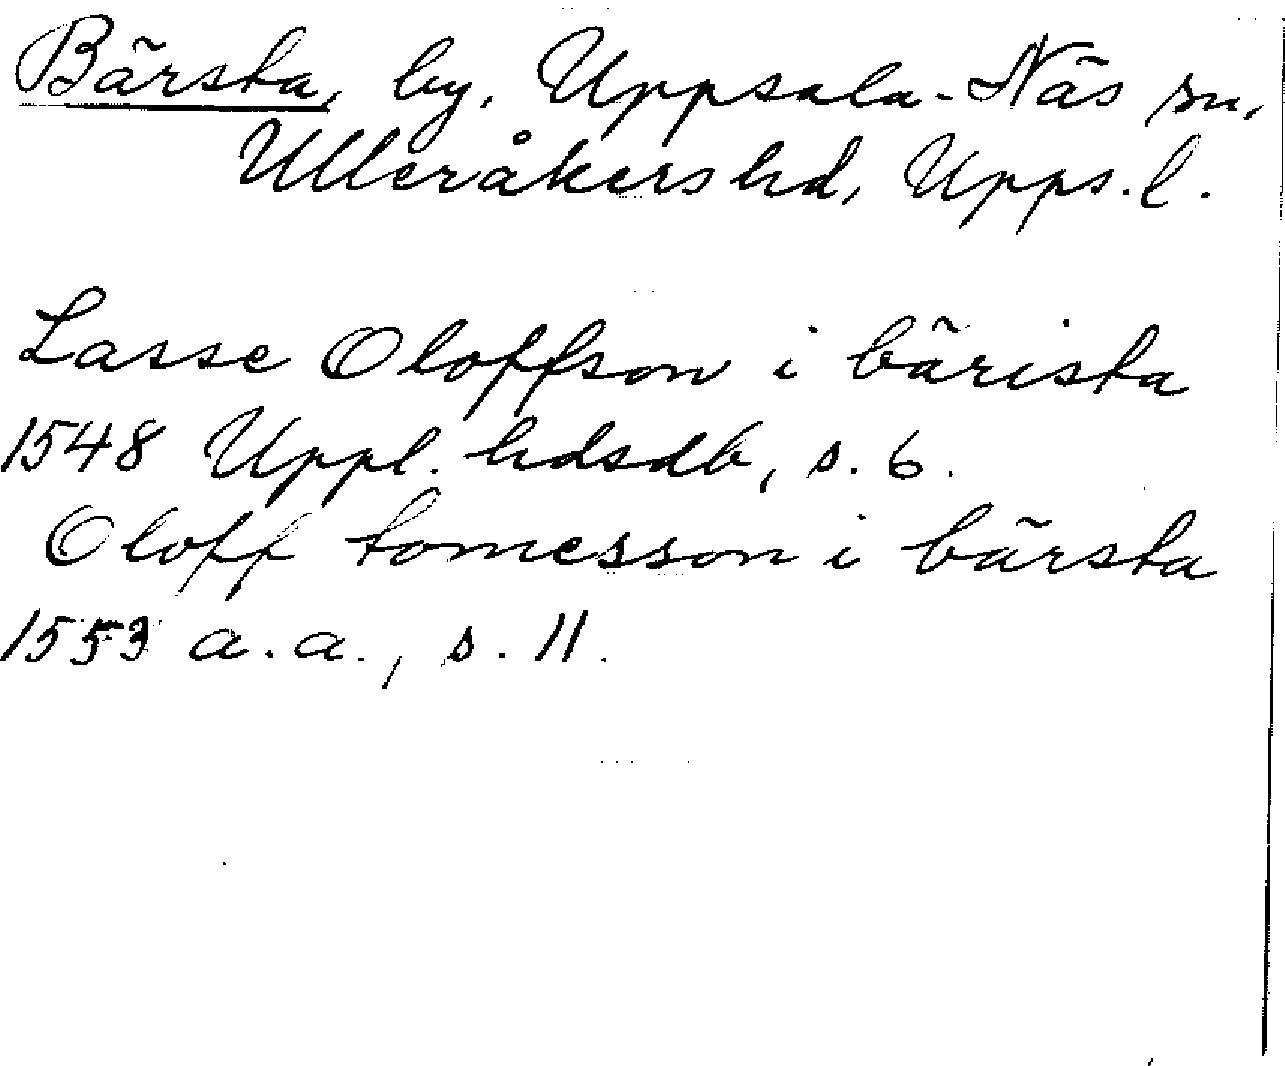 Bärsta, by, Uppsala-Näs sn,
Ulleråkers hd, Upps. l.
Lasse Oloffson i bärista
1548 Uppl. hdsdb, s. 6.
Oloff tomesson i bärsta
1553 a.a., s. 11.